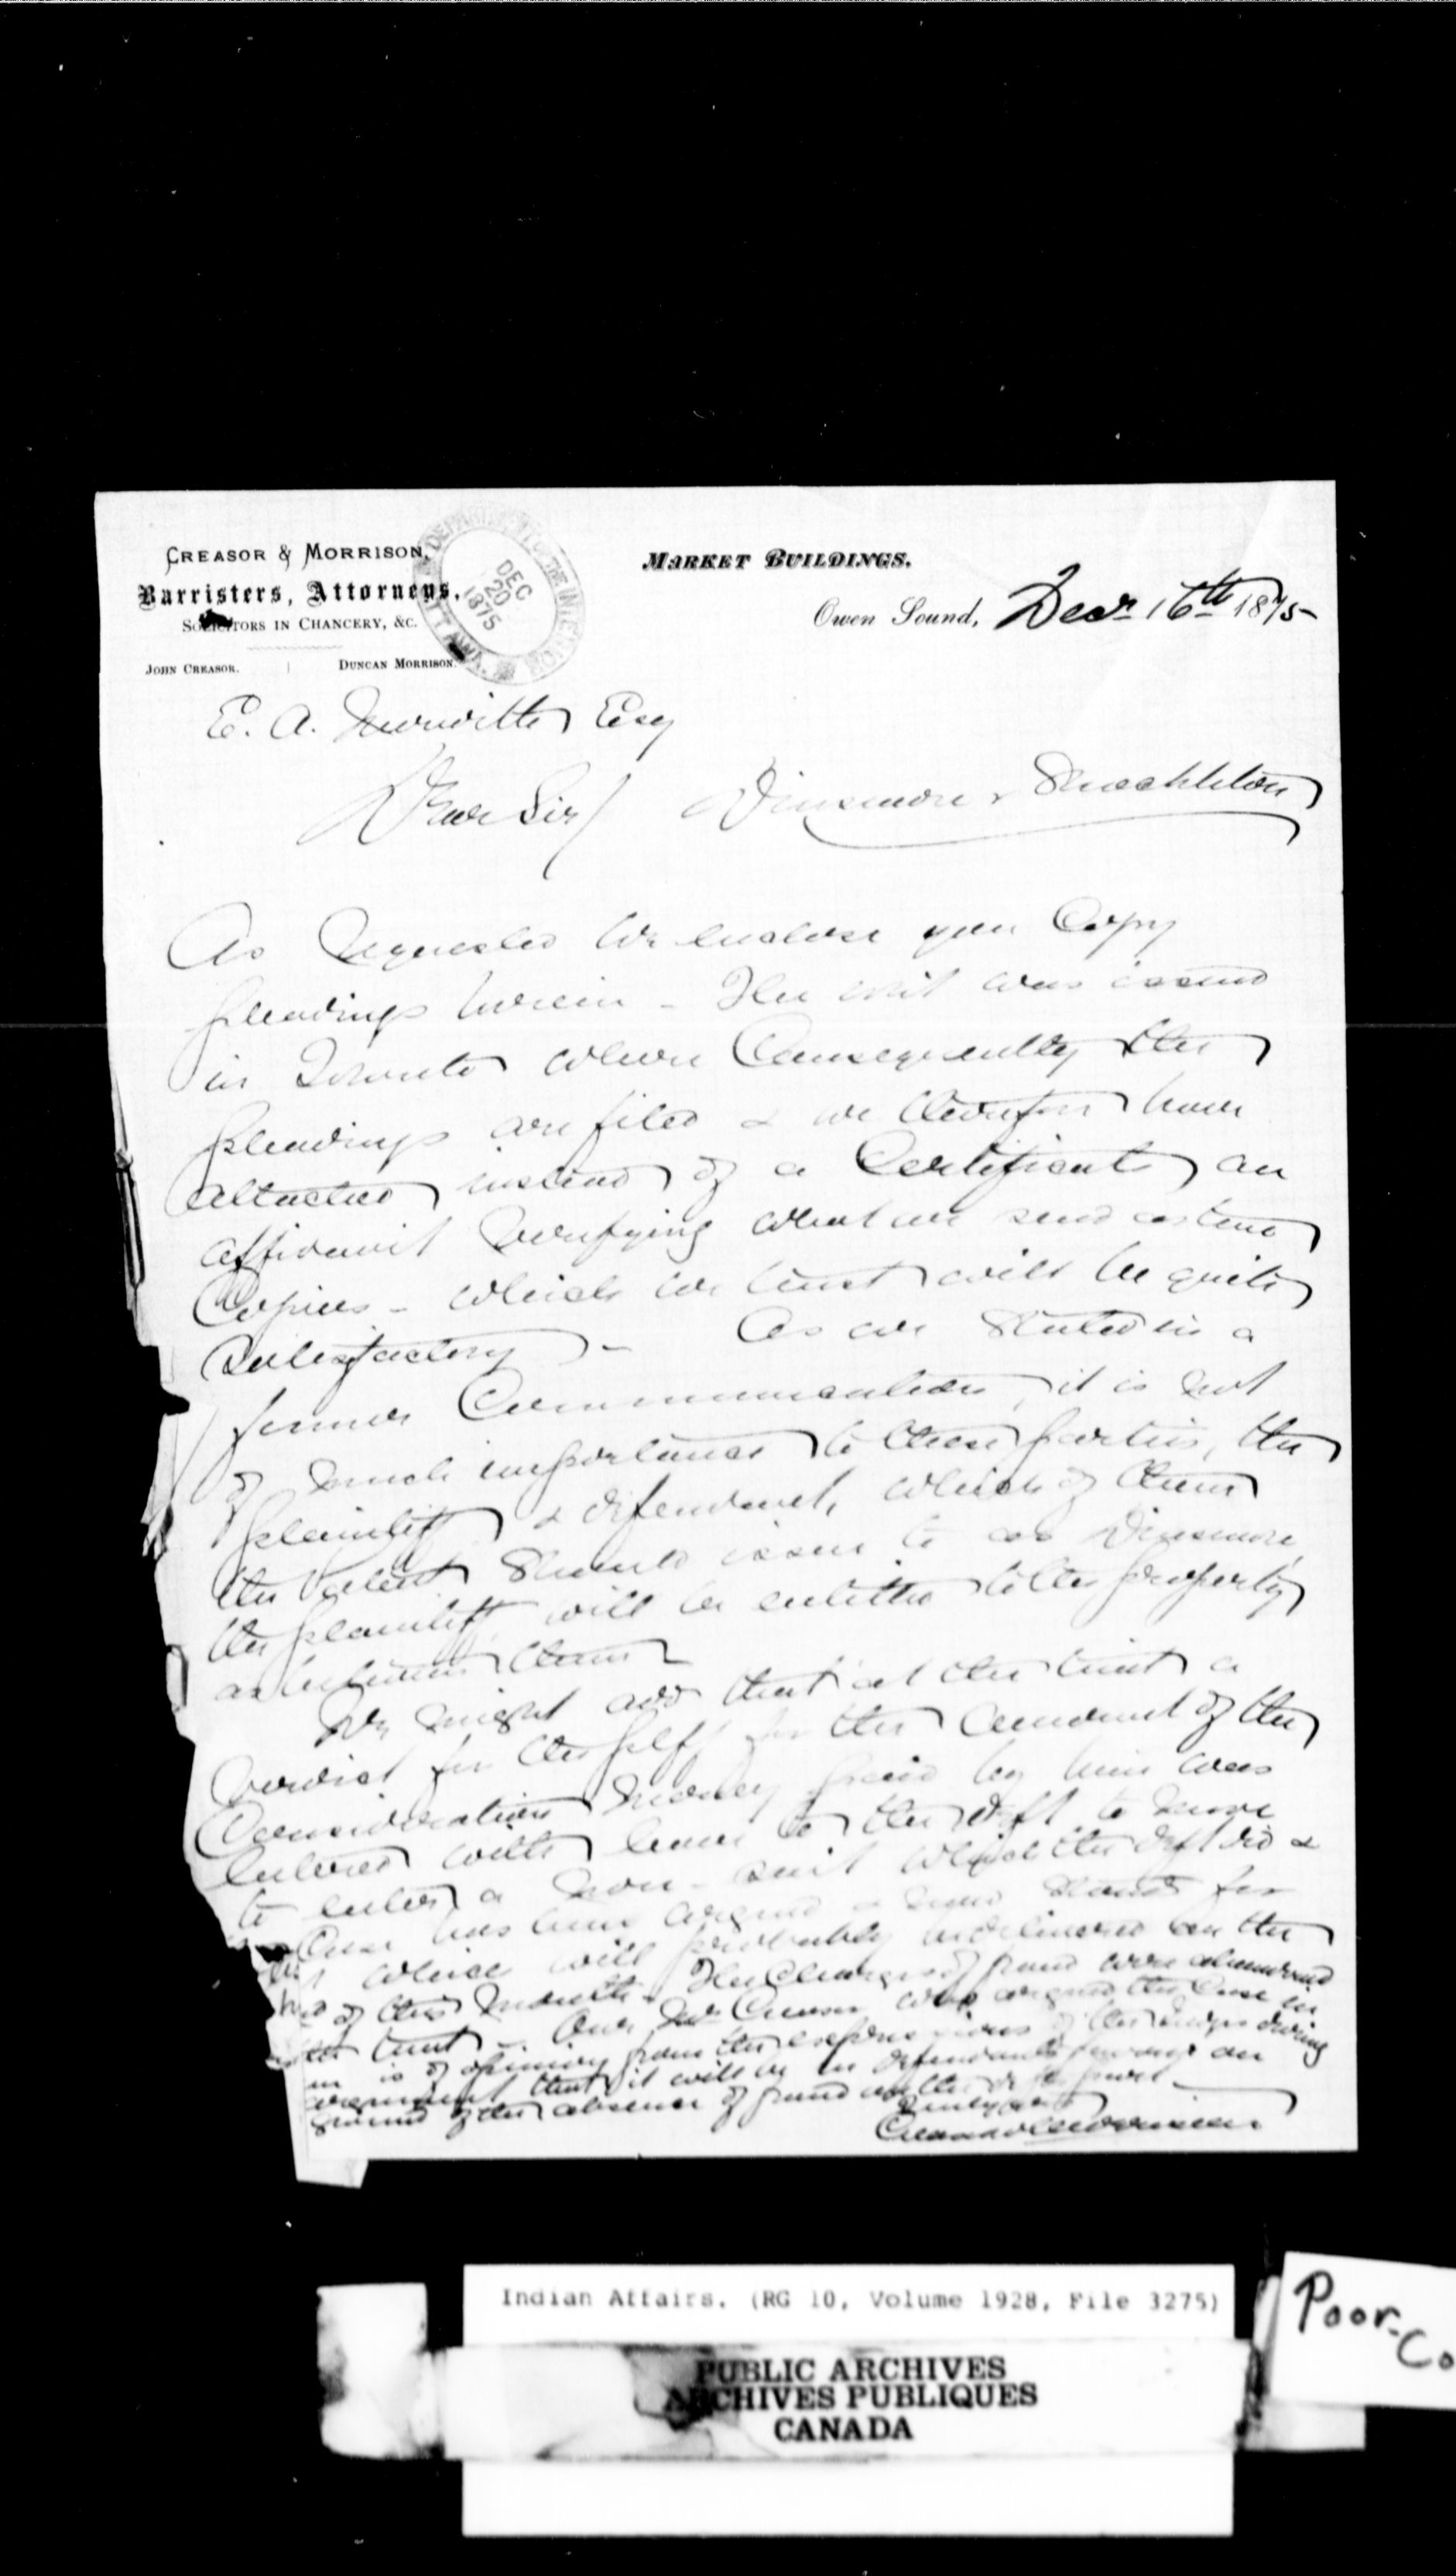 CREASOR & MORRISON,
Barristers, Attorneys,
SOLICITORS IN CHANCERY, &C.
JOHN CREASOR. DUNCAN MORRISON.
DEPARTMENT OF THE INTERIOR
DEC
20
1875
OTTAWA
MARKET BUILDINGS.
Owen Sound, Decr 16th 1875
E. A. Esq
Dear Sir/ Dinsmore v Shackleton
As requested we enclose you Copy
pleadings herein - The writ was issued
in Toronto where Consequently the
pleadings are filed & we therefore have
attached instead of a Certificate an
affidavit verifying what we send as true
Copies - which we trust will be quite
satisfactory - As we stated in a
former Communication, it is not
of much importance to these parties, the
plaintiff & defendant, which of them
the patent should issue to as Dinsmore
the plaintiff will be entitled to the property
as between them -
We might add that at the trial a
verdict for the plff for the amount of the
Consideration money paid by him was
entered with leave to the deft to move
to enter a non-suit which the deft did &
Case has been argued & now stands for
which will probably be delivered on the
of this month - The Charges of fraud were abandoned
trial - Our Mr Creasor who argued the Case in
is of opinion from the expressions of the Judges during
argument that it will be in defendants favour on
ground of the absence of fraud on the defts part -
Truly yrs
Creasor & Morrison
Indian Affairs. (RG 10, Volume 1928, File 3275)
PUBLIC ARCHIVES
ARCHIVES PUBLIQUES
CANADA
Poor
Co